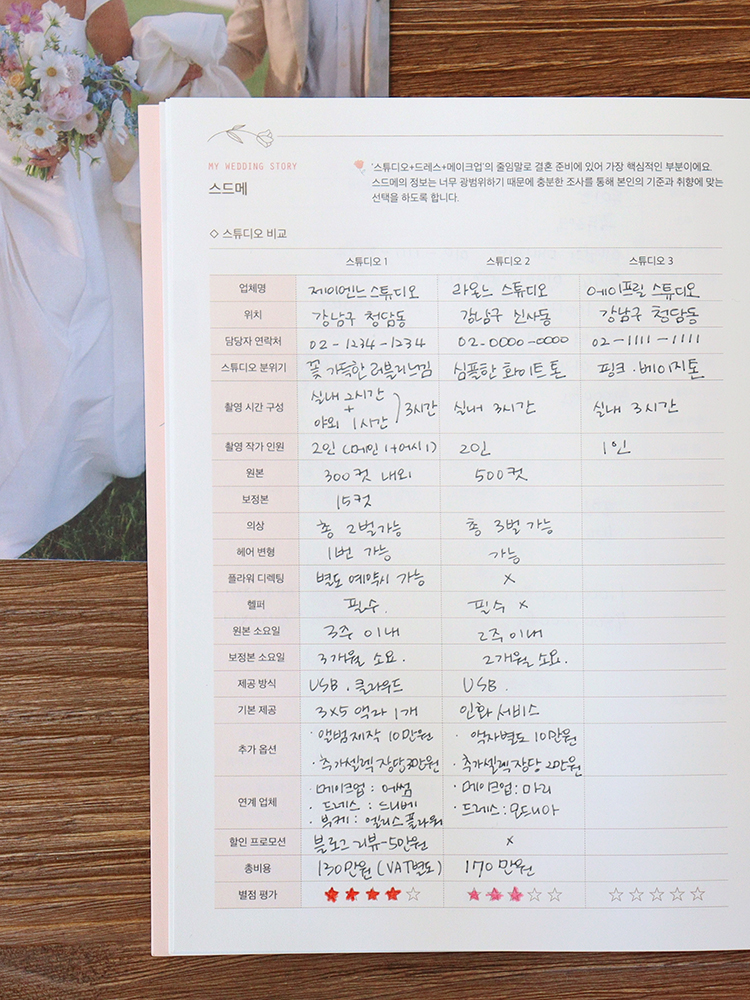 MY WEDDING STORY
스드메
'스튜디오+드레스+메이크업'의 줄임말로 결혼 준비에 있어 가장 핵심적인 부분이에요.
스드메의 정보는 너무 광범위하기 때문에 충분한 조사를 통해 본인의 기준과 취향에 맞는
선택을 하도록 합니다.
◇ 스튜디오 비교
스튜디오 1 스튜디오 2 스튜디오 3
업체명 제이엔느 스튜디오 라올느 스튜디오 에이프릴 스튜디오
위치 강남구 청담동 강남구 신사동 강남구 청담동
담당자 연락처 02-1234-1234 02-0000-0000 02-1111-1111
스튜디오 분위기 꽃 가득한 러블리느낌 심플한 화이트 톤 핑크·베이지톤
촬영 시간 구성 실내 2시간 + 야외 1시간 ) 3시간 실내 3시간 실내 3시간
촬영 작가 인원 2인 (메인1+어시1) 2인 1인
원본 300컷 내외 500컷
보정본 15컷
의상 총 2벌가능 총 3벌 가능
헤어 변형 1번 가능 가능
플라워 디렉팅 별도 예약시 가능 x
헬퍼 필수. 필수 x
원본 소요일 3주 이내 2주 이내
보정본 소요일 3개월 소요. 2개월 소요.
제공 방식 USB. 클라우드 USB.
기본 제공 3x5 액자 1개 인화 서비스
추가 옵션 ·앨범제작 10만원 ·액자별도 10만원
·추가셀렉 장당 3만원 ·추가셀렉 장당 2만원
연계 업체 ·메이크업 : 에썸 ·메이크업 : 마리
·드레스 : 드니베 ·드레스 : 모드니아
·부케 : 엘리스플라워
할인 프로모션 블로그 리뷰-5만원 x
총비용 130만원 (VAT별도) 170만원
별점 평가 ★★★★☆ ★★★☆☆ ☆☆☆☆☆